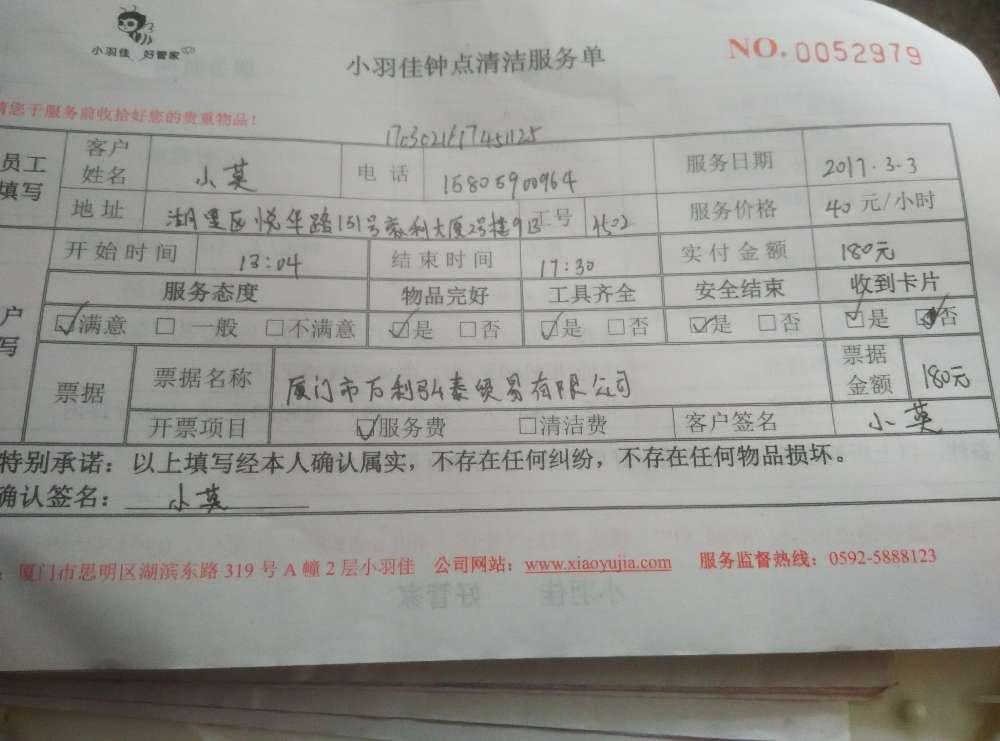 小羽佳 好管家
小羽佳钟点清洁服务单
NO. 0052979
请您于服务前收拾好您的贵重物品！
1703021617451125
员工填写 客户姓名 小英 电话 15805900964 服务日期 2017.3.3
地址 湖里区悦华路151号泰利大厦2号楼9B 工号 4502 服务价格 40 元/小时
开始时间 13:04 结束时间 17:30 实付金额 180元
户写 服务态度 物品完好 工具齐全 安全结束 收到卡片
☑满意 □一般 □不满意 ☑是 □否 ☑是 □否 ☑是 □否 ☑是 ☑否
票据 票据名称 厦门市万利弘泰贸易有限公司 票据金额 180元
开票项目 ☑服务费 □清洁费 客户签名 小英
特别承诺：以上填写经本人确认属实，不存在任何纠纷，不存在任何物品损坏。
确认签名：小英
：厦门市思明区湖滨东路 319 号 A 幢 2 层小羽佳 公司网站：www.xiaoyujia.com 服务监督热线：0592-5888123
小羽佳 好管家